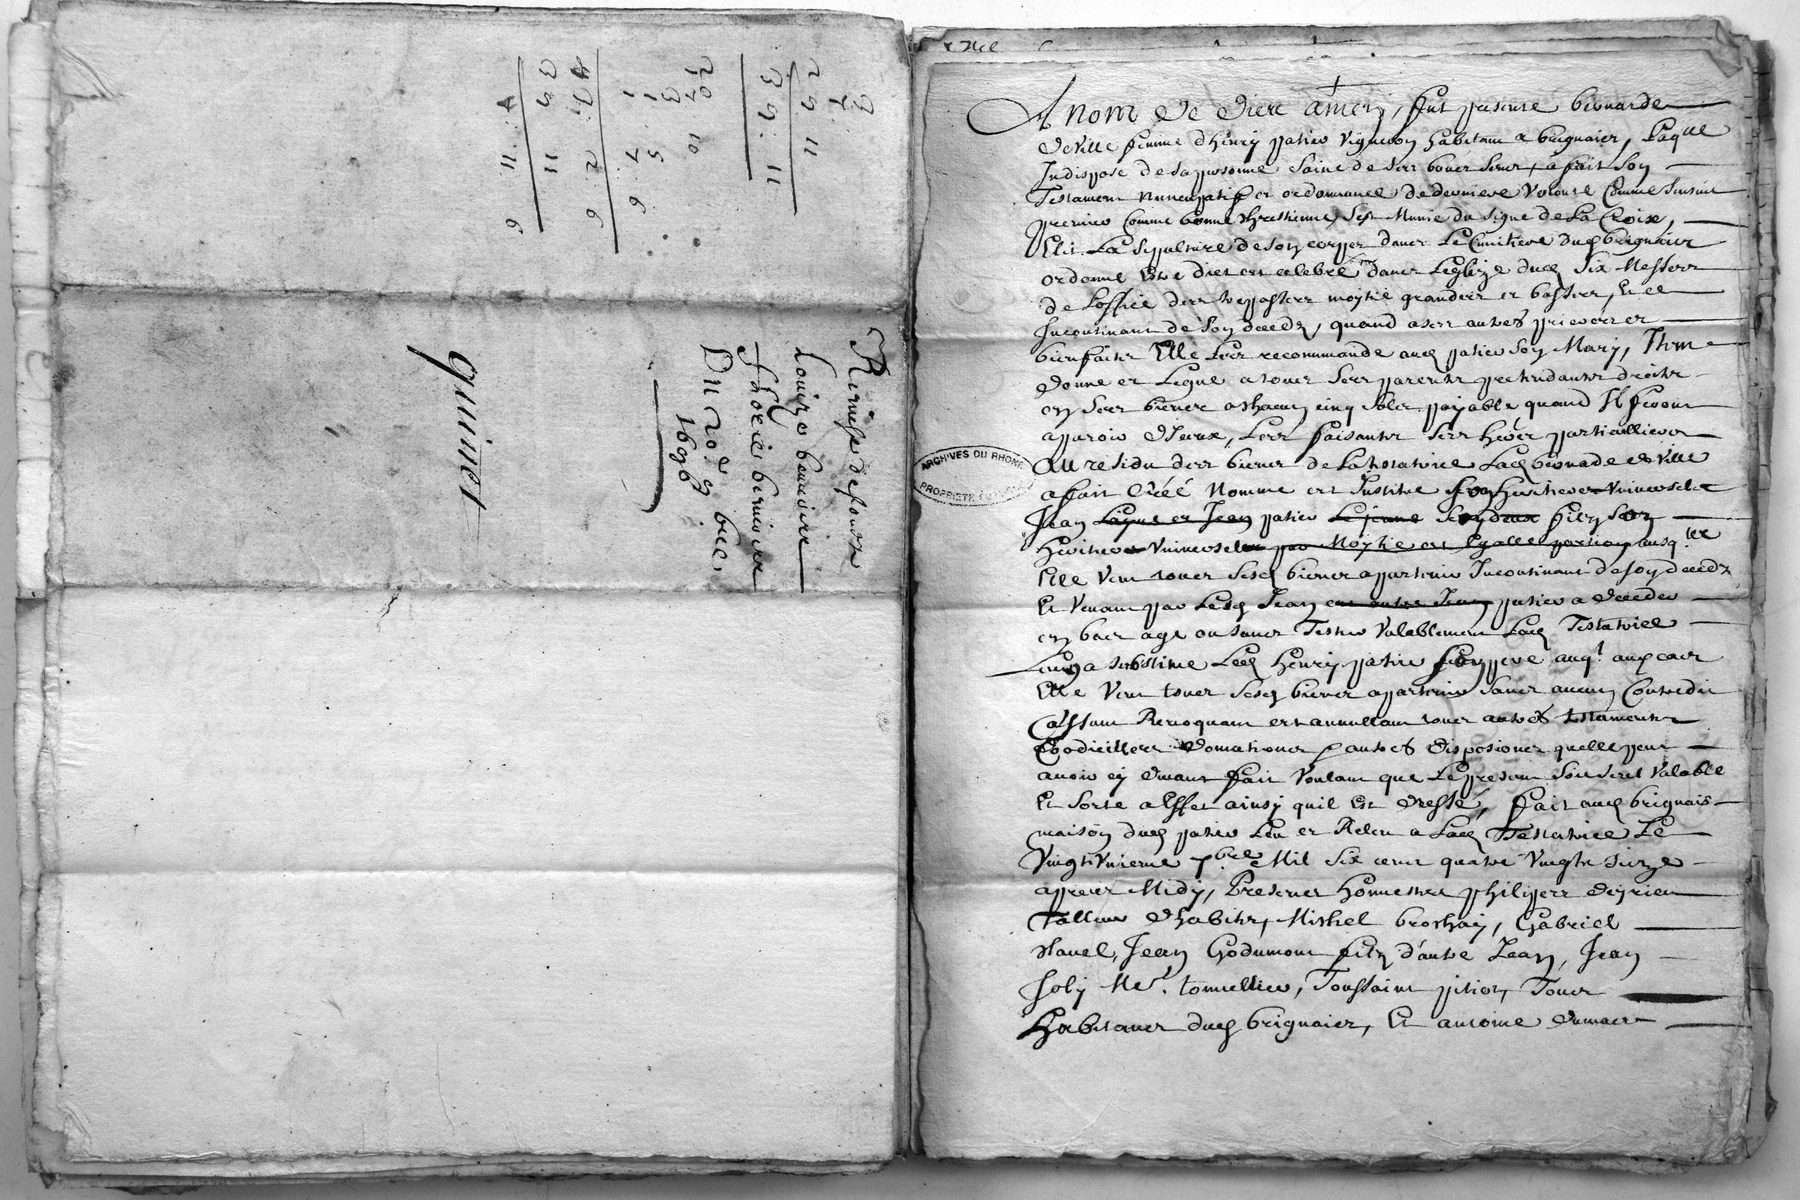 7
29 11
39. 11
20. 10
3
1. 5
1. 7. 6
47. 2. 6
39 11
A 11. 6
Louize
Du 20e 9bre
1696
quinet
Au nom de Dieu amen, fut presente bernarde
deville femme dhenry patier vigneron habitant a brignaiz, Laqlle
Indispose de sa personne saine de ses bons sens, a fait son
Testament nuncupatif et ordonnance de derniere volonte Comme sensuit
premier Comme bonne chrestienne sest Munie du signe de La Croix,
Elit La sepulture de son corps dans Le Cimetiere dud brignaiz
ordonne estre dict et celebre dans Leglize dud six Messes
de Loffice des trepasses moytié grandes et basses, Et ce
Incontinant de son deceds, quand a ses autres prieres et
bienfaits Elle Les recommande aud patier son Mary, Item
donne et Legue a tous ses parents pretendants droits
en ses biens a chacun cinq sols payable quand Il feront
aparoir diceux, Les faisants ses heers particulliers
Au residu des biens de La testatrice Lad bernade deville
a fait créé Nomme et Institue son heritier Universel
Jean Layne et Jean patier Le jeune ses deux fils son
heritier Universel par Moytie et Egalle portion ausqls
Elle Veut tous sesd biens appartenir Incontinant de son deceds
Et Venant par Led Jean et autre Jean patier a deceder
en bas age ou sans Tester Valablement Lad Testatrice
Luy a substitue Led Henry patier son pere auql aud cas
Elle Veut tous sesd biens apartenir sans aucun Contredit
Cassant Revoquant et annullant tous autres testaments
Codicilles donnations & autres disposions quelle peut
avoir cy devant fait Voulant que Le present soit seul Valable
Et sorte a Effet ainsy quil est dressé, fait aud brignais
maison dud patier Leu et Releu a Lad Testatrice Le
Vingt Unieme 7bre Mil six cens quatre Vingts seize
apres Midy, Presens honnestes philippes deyrieu
Talleur dhabits, Michel brochay, Gabriel
Jean Godumont fils dautre Jean, Jean
Joly Me. tonnellier, Toussaint pitiot, Tous
Habitans dud brignaiz, Et antoine dumas
ARCHIVES DU RHONE
PROPRIETE PUBLIQUE